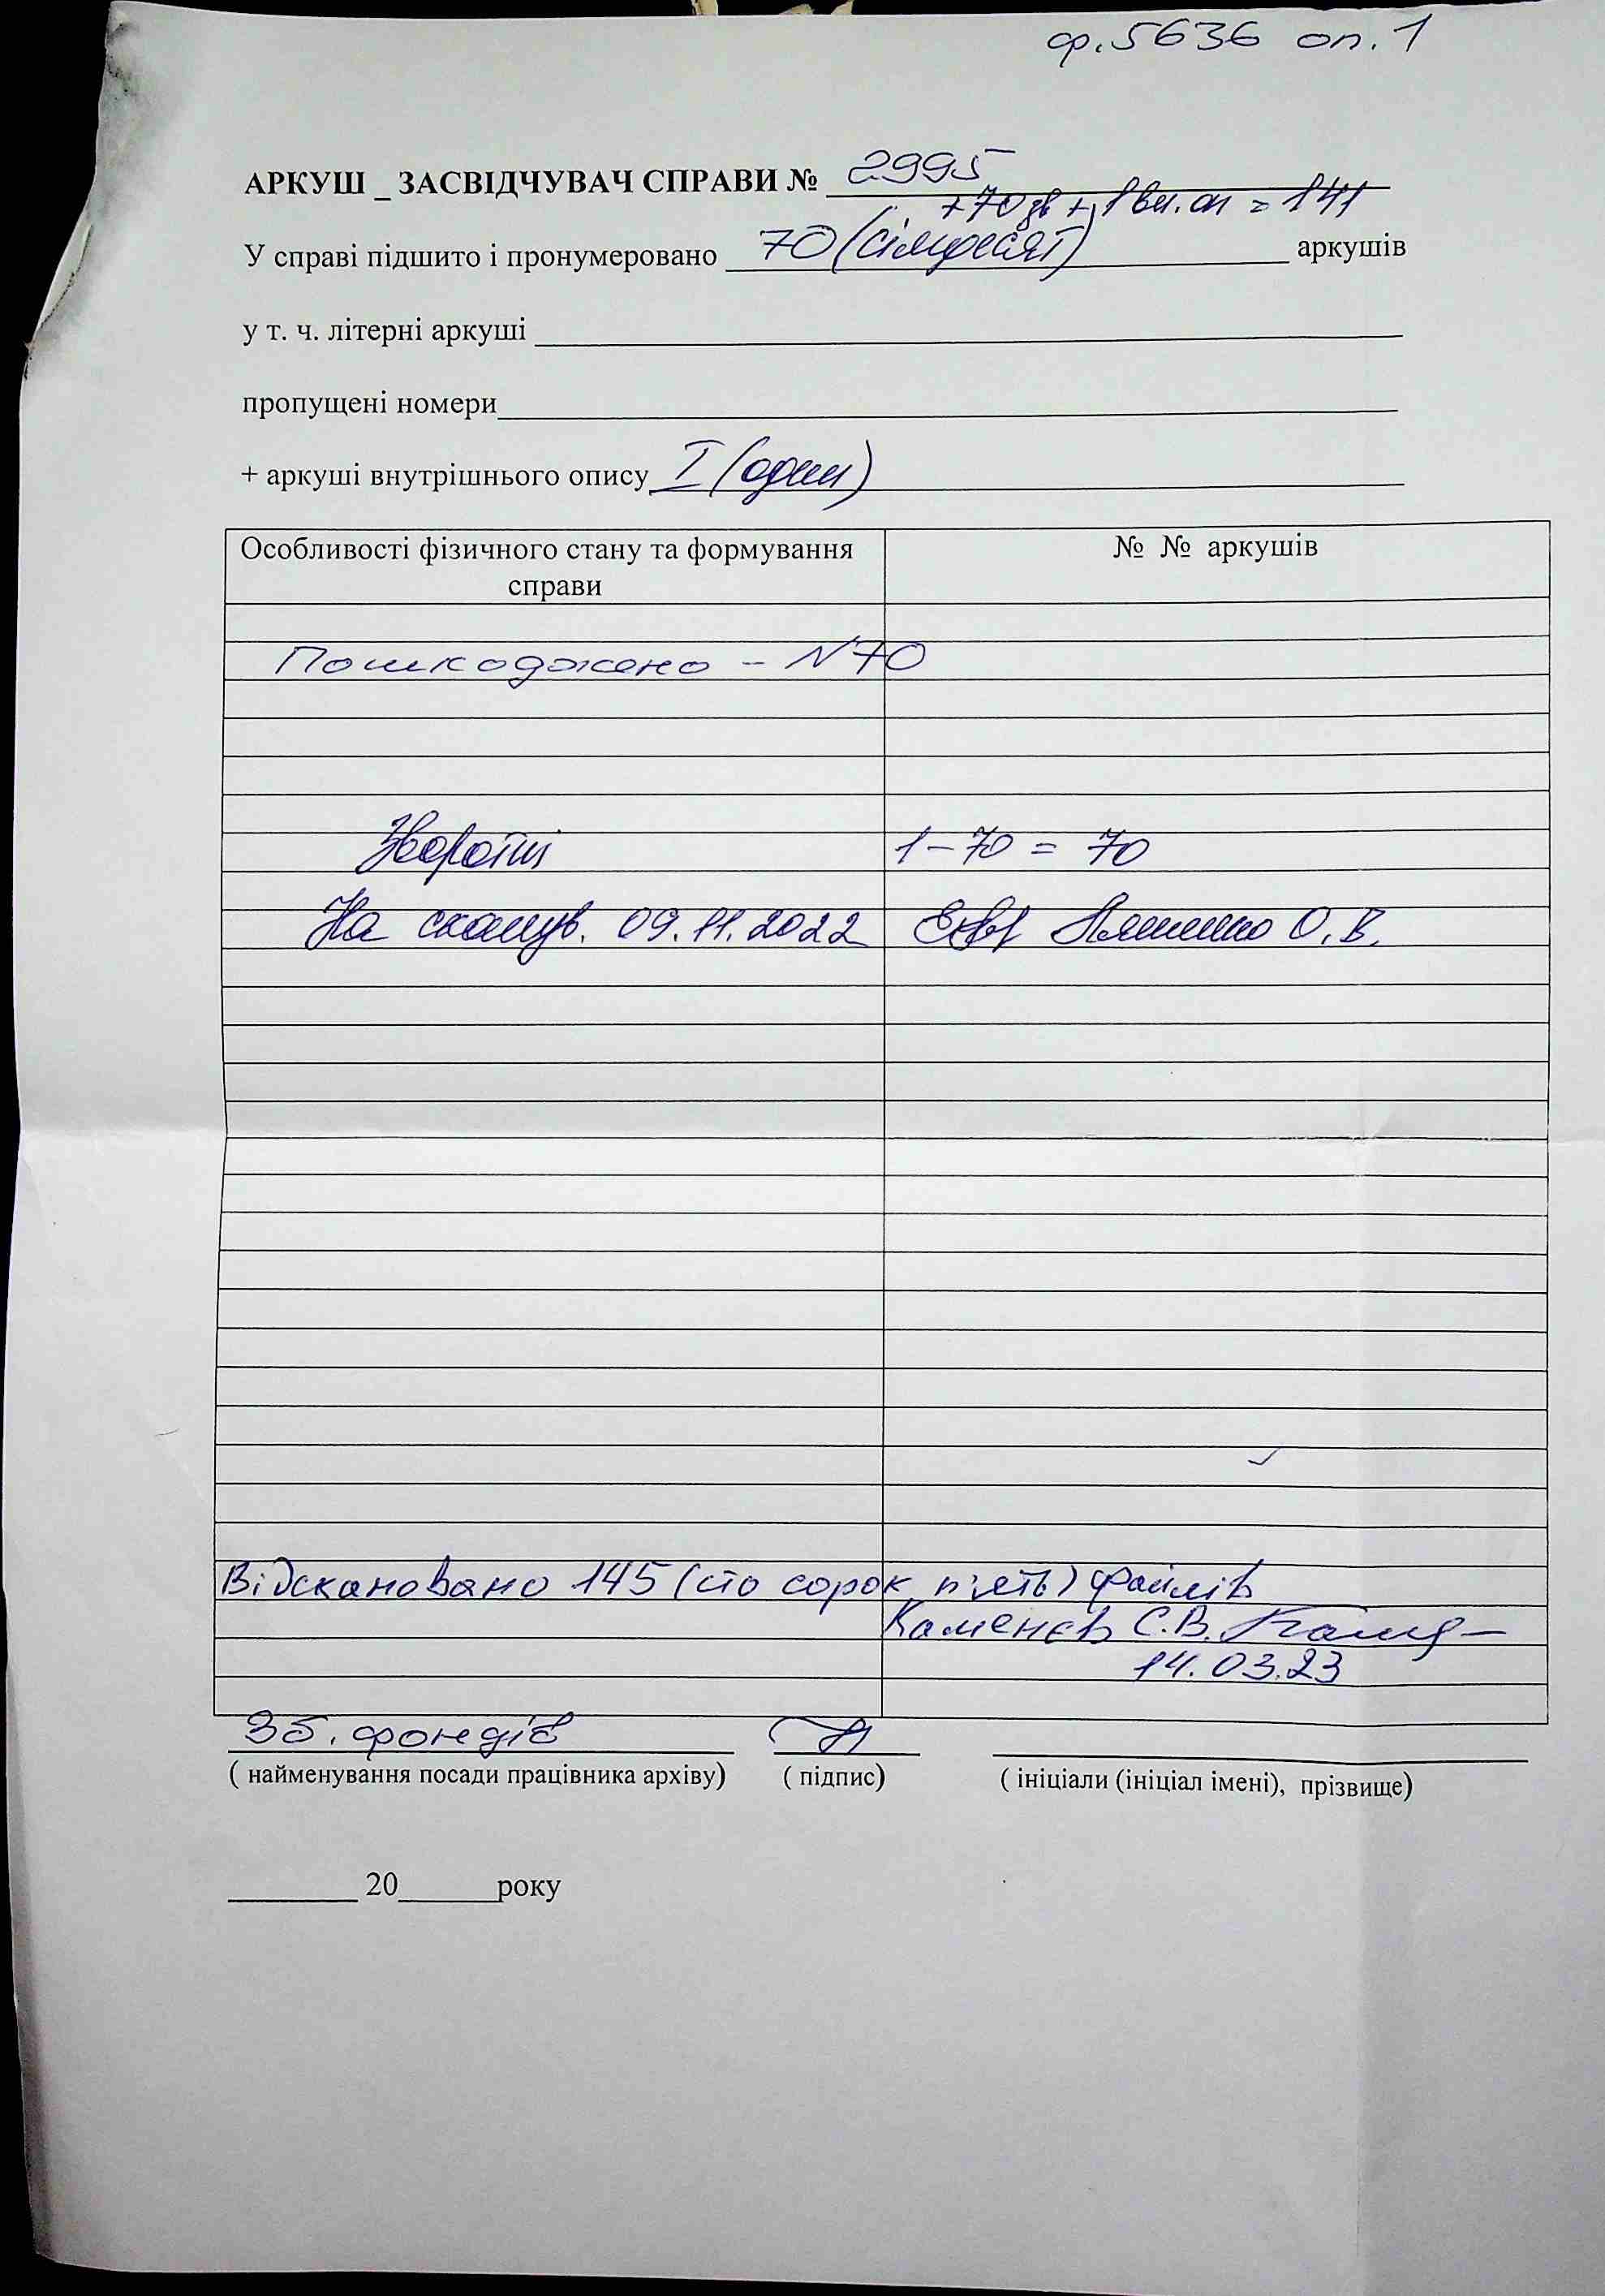 ф.5636 оп.1
АРКУШ _ ЗАСВІДЧУВАЧ СПРАВИ № 2995
+70 зв + 1 вн. оп = 141
У справі підшито і пронумеровано 70 (сімдесят) аркушів
у т. ч. літерні аркуші
пропущені номери
+ аркуші внутрішнього опису I (один)
Особливості фізичного стану та формування справи
№ № аркушів
Пошкоджено - N 70
Зворотні 1-70 = 70
На сканув. 09.11.2022 О.В.
Відскановано 145 (сто сорок п'ять) файлів
Каменєв С.В.
14.03.23
Зб. фондів
( найменування посади працівника архіву) ( підпис) ( ініціали (ініціал імені), прізвище)
20 року